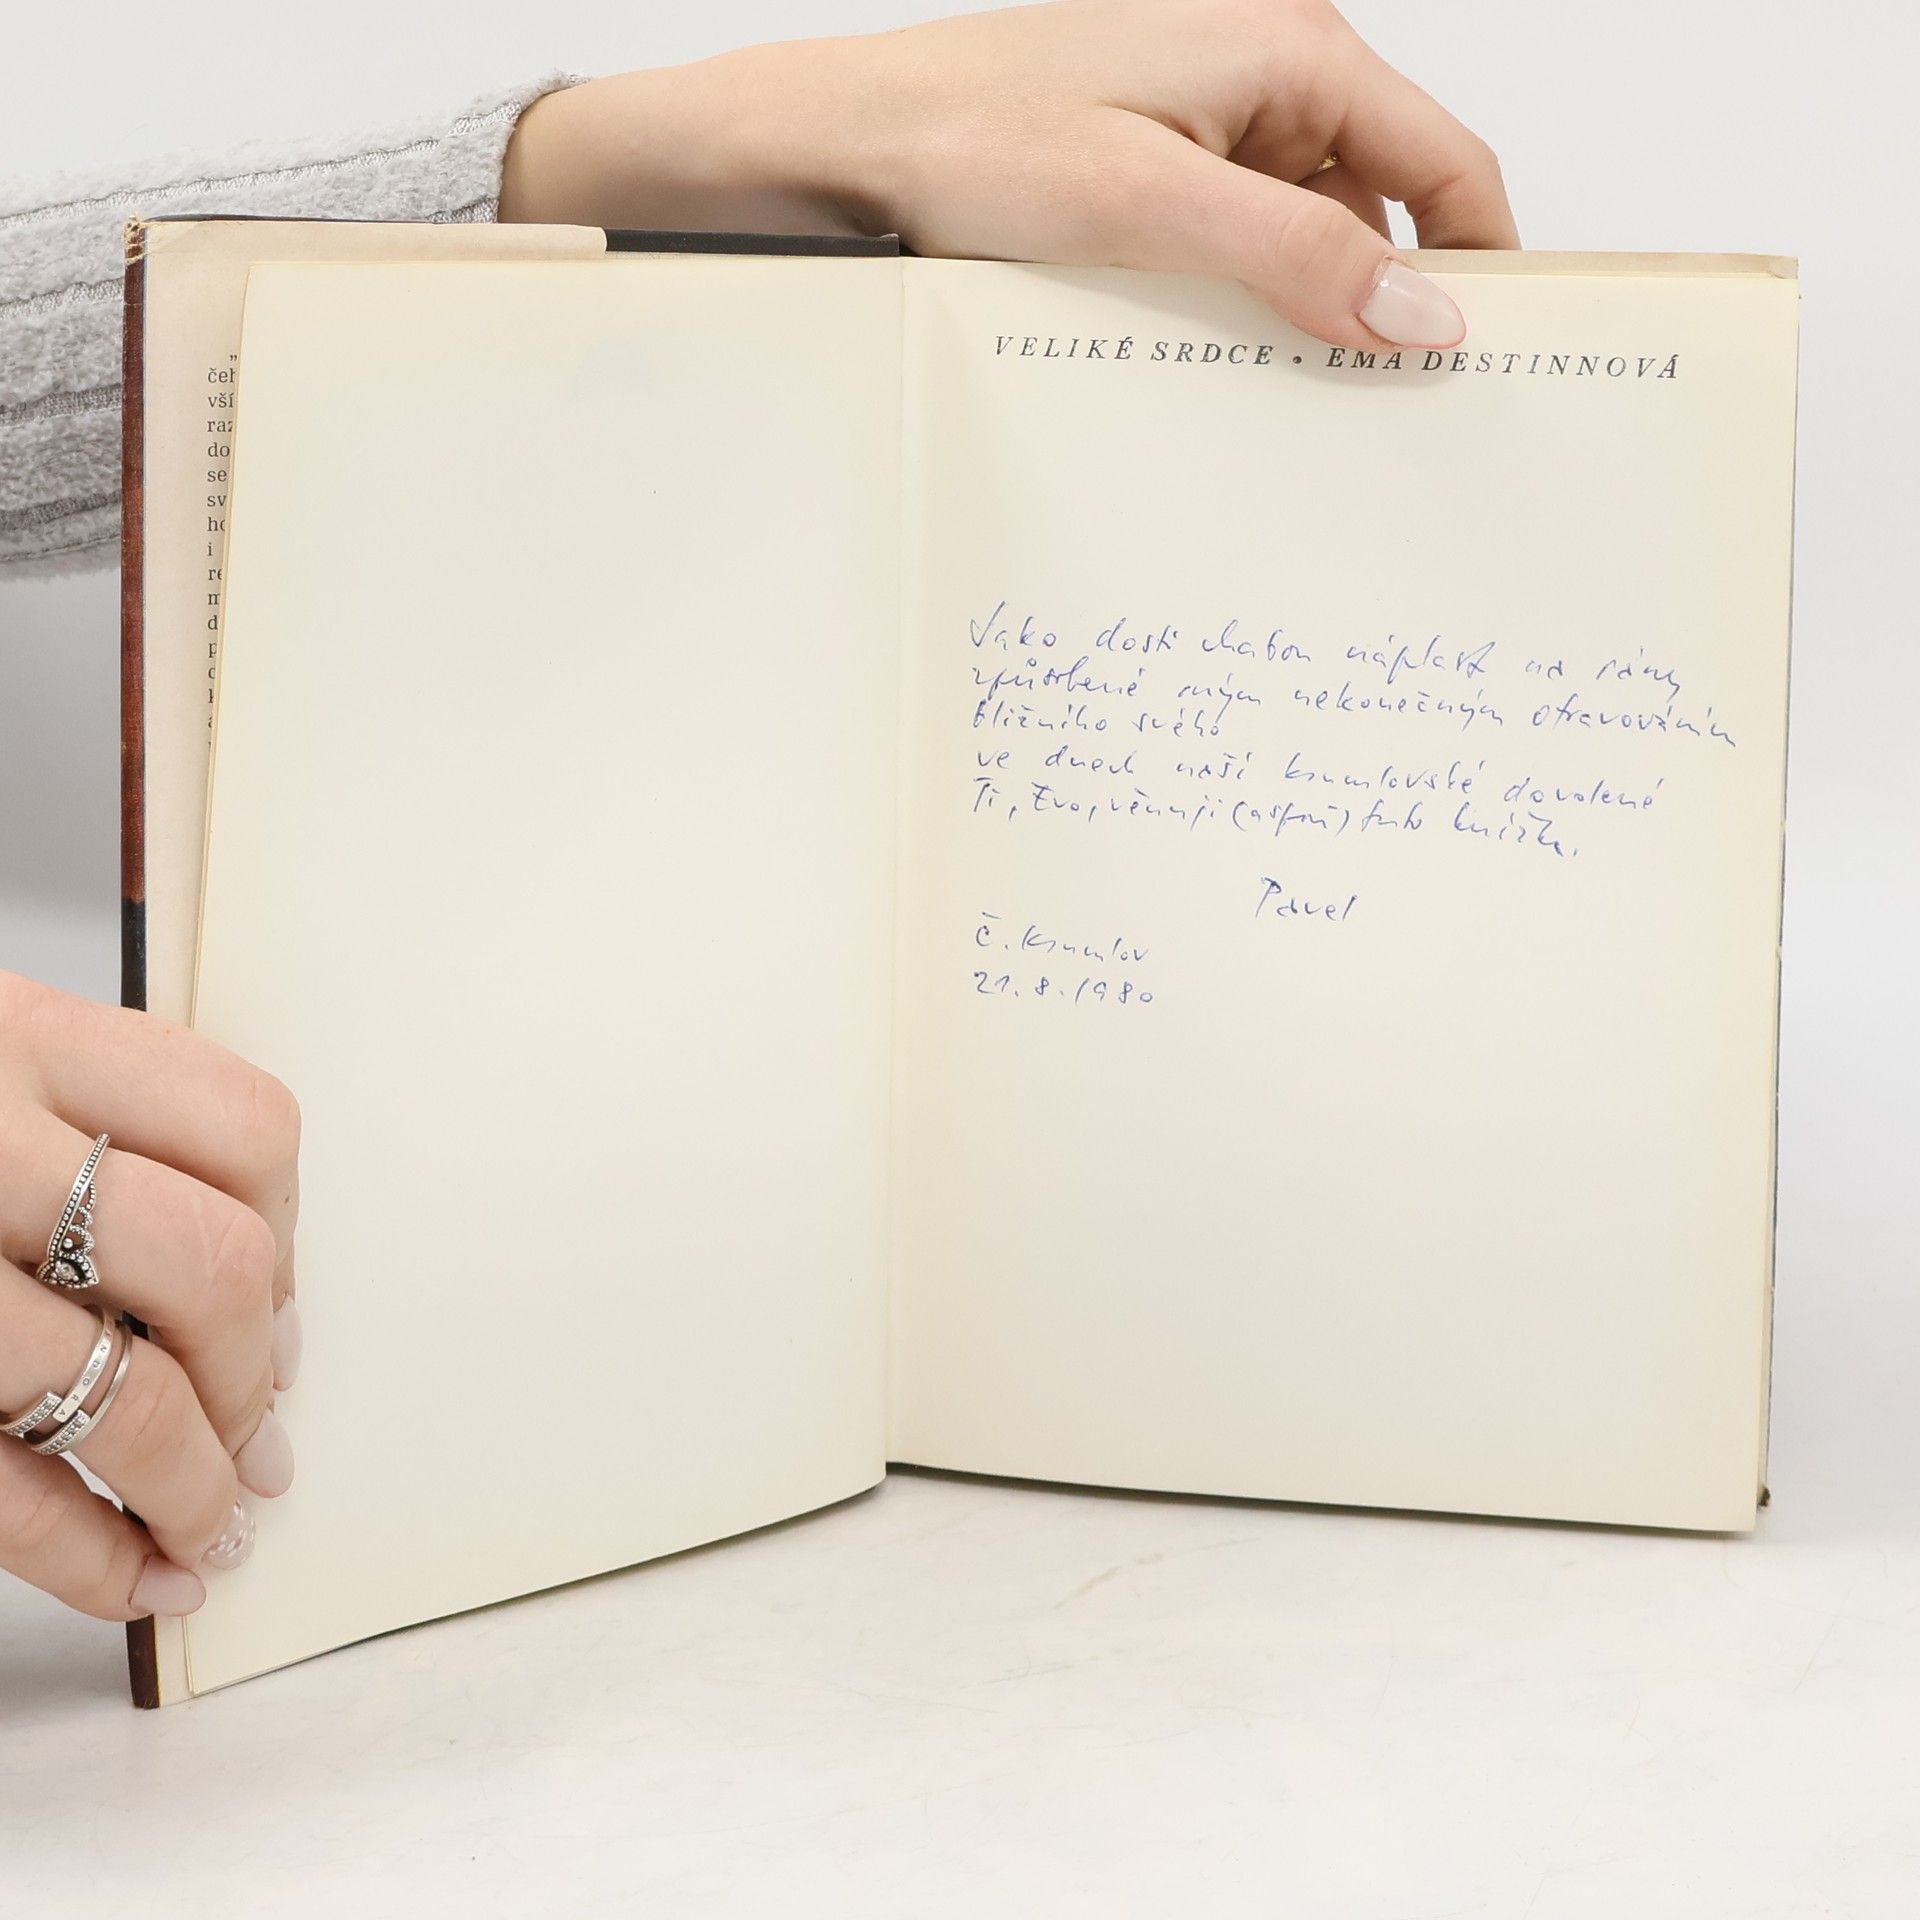 VELIKÉ SRDCE • EMA DESTINNOVÁ
Jako dosti chabou náplast na rány
způsobené mým nekonečným otravováním
bližního svého
ve dnech naší krumlovské dovolené
Ti, Evo, věnuji (aspoň) tuto knížku.
Pavel
Č. Krumlov
21. 8. 1980
„
vší
do
se
sv
i
PANDORA